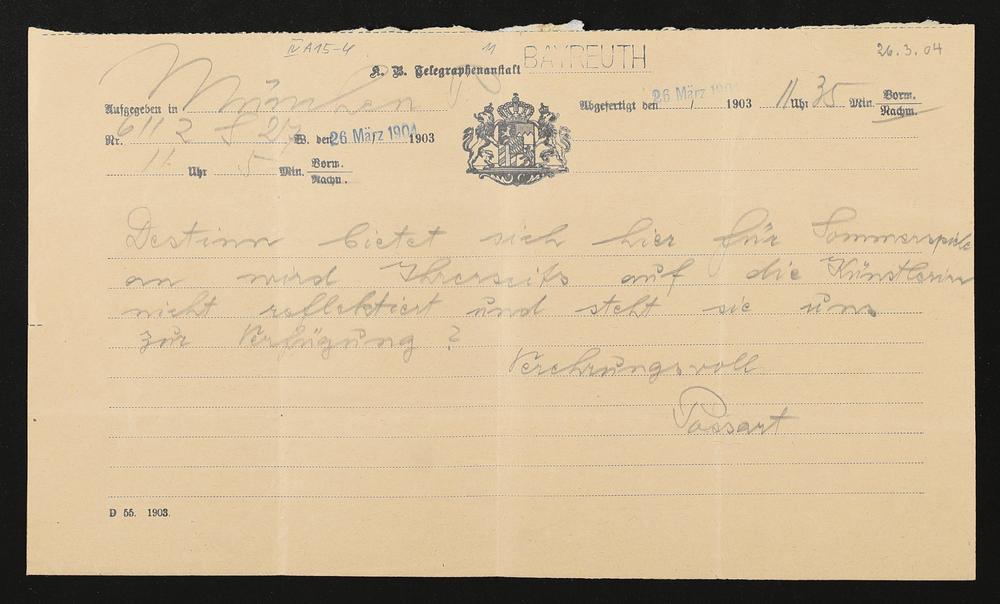 IV A 15-4
26.3.04
K. B. Telegraphenanstalt BAYREUTH
Aufgegeben in München
Abgefertigt den 26 März 1904 1903 11 Uhr 35 Min. Vorm. Nachm.
Nr. 6112 S 27 W. den 26 März 1904 1903
11 Uhr 5 Min. Vorm. Nachm.
Destinn bietet sich hier für Sommerspiele
an wird Ihrerseits auf die Künstlerin
nicht reflektiert und steht sie uns
zur Verfügung?
Verehrungsvoll
Possart
D 55. 1903.